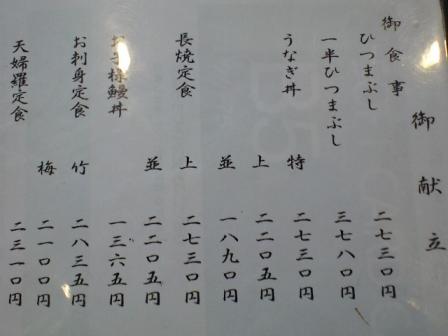 御献立
御食事
ひつまぶし 二七三〇円
一半ひつまぶし 三七八〇円
うなぎ丼 特 二七三〇円
上 二二〇五円
並 一八九〇円
長焼定食 上 二七三〇円
並 二二〇五円
お子様鰻丼 一三六五円
お刺身定食 竹 二八三五円
梅 二一〇〇円
天婦羅定食 二三一〇円